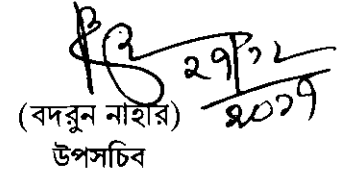 ২৭/১২
২০১৭
(বদরুন নাহার)
উপসচিব